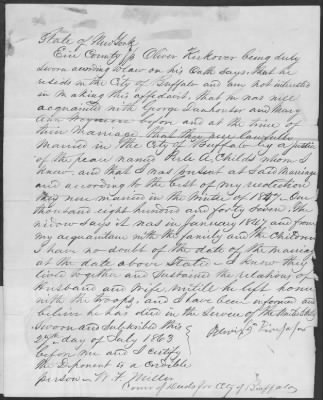 State of New York
Erie County ss Oliver being duly
sworn according to law on his Oath Says: that he
resides in the City of Buffalo and am not interested
in making this affidavit, that he was well
acquainted with George and Mary
Ann before and at the time of
their Marriage, that they were lawfully
Married in the City of Buffalo by a justice
of the peace named A. Childs whom I
knew, and that I was present at Said Marriage
and according to the best of my recollection
they were married in the Winter of 1847. One
thousand eight hundred and forty Seven. The
widow says it was in January 1847 and from
my acquaintance with the family and the Children
I have no doubt of the date of the marriage
at the date above Stated - I know they
lived together and Sustained the relations of
Husband and Wife untill he left home
with the troops, and I have been informed and
believe he has died in the Service of the United States
Sworn and Subscribed this
27th day of July 1863
before me and I certify
the Deponent is a credible
person - W. F. Miller
Comr of Deeds for City of Buffalo